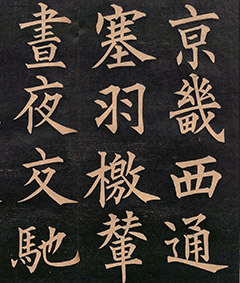 京畿西通
塞羽檄輦
晝夜交馳